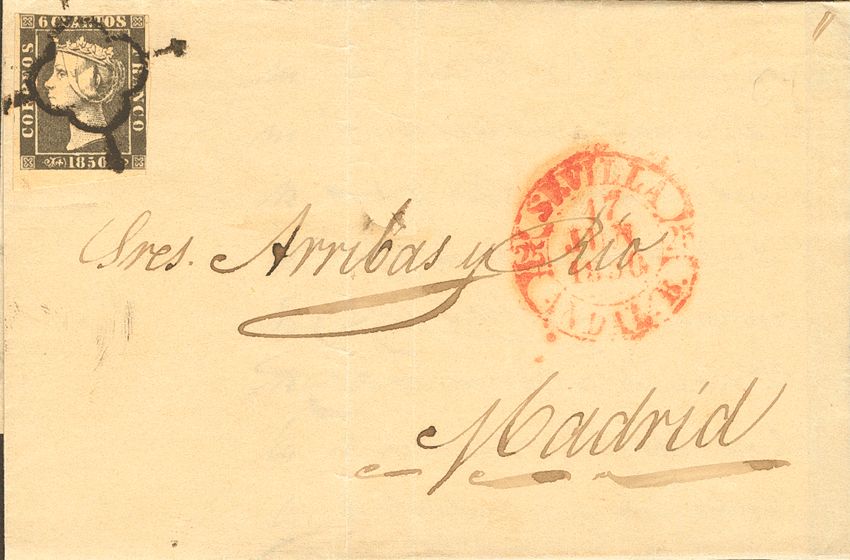 6 CUARTOS
CORREOS
FRANCO
1850
SEVILLA
17
JUN
1850
ANDAL. B.
Sres. Arribas y Rio
Madrid